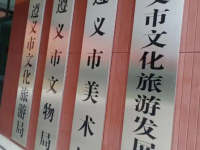 遵义市文化旅游局
遵义市文物局
遵义市美术
义市文化旅游发展